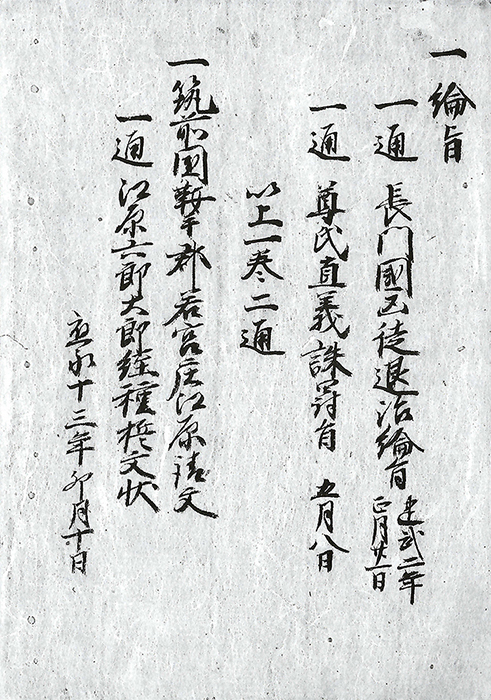 一綸旨
一通 長門國凶徒退治綸旨 建武二年
正月廿一日
一通 尊氏直義誅罸旨 五月八日
以上一巻二通
一筑前國鞍手郡若宮庄江原請文
一通 江原六郎大郎経種 文状
應永十三年卯月十日